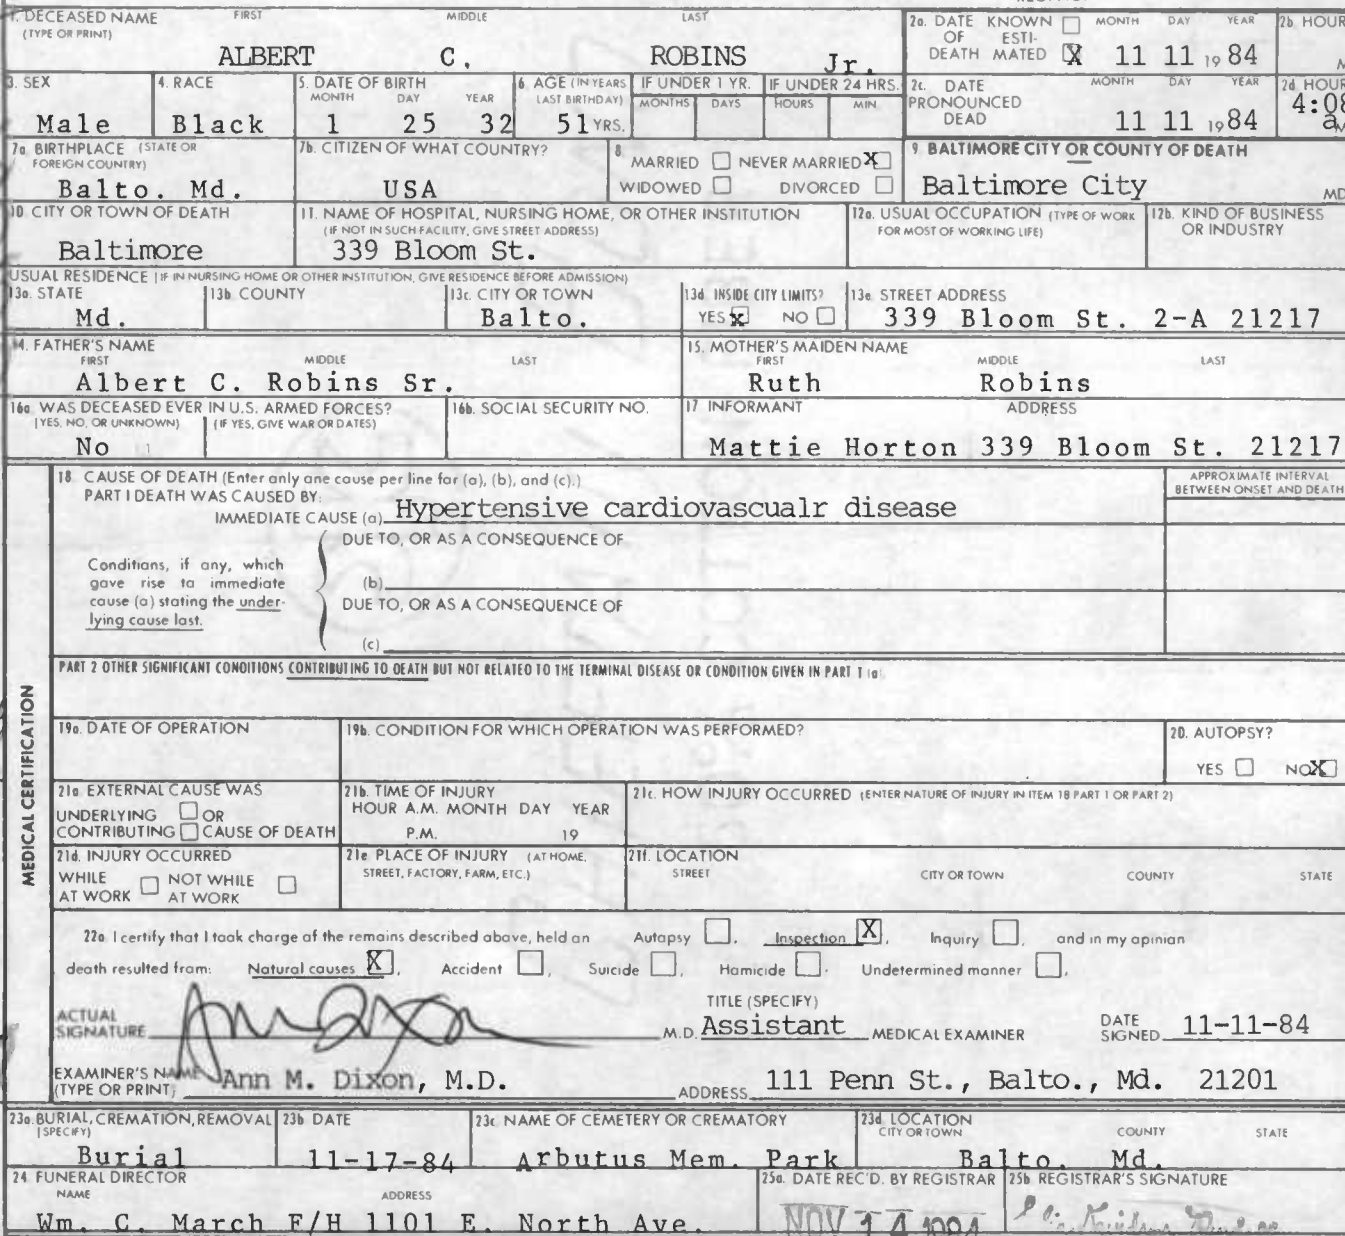 1. DECEASED NAME FIRST MIDDLE LAST
(TYPE OR PRINT)
ALBERT C. ROBINS Jr.
2a. DATE KNOWN MONTH DAY YEAR
OF ESTI-
DEATH MATED X 11 11 19 84
2b. HOUR
M
3. SEX
Male
4. RACE
Black
5. DATE OF BIRTH
MONTH DAY YEAR
1 25 32
6. AGE (IN YEARS
LAST BIRTHDAY)
51 YRS.
IF UNDER 1 YR.
MONTHS DAYS
IF UNDER 24 HRS.
HOURS MIN.
2c. DATE MONTH DAY YEAR
PRONOUNCED
DEAD 11 11 19 84
2d HOUR
4:08
a M
7a. BIRTHPLACE (STATE OR
FOREIGN COUNTRY)
Balto. Md.
7b. CITIZEN OF WHAT COUNTRY?
USA
8
MARRIED NEVER MARRIED X
WIDOWED DIVORCED
9 BALTIMORE CITY OR COUNTY OF DEATH
Baltimore City
MD
10. CITY OR TOWN OF DEATH
Baltimore
11. NAME OF HOSPITAL, NURSING HOME, OR OTHER INSTITUTION
(IF NOT IN SUCH FACILITY, GIVE STREET ADDRESS)
339 Bloom St.
12a. USUAL OCCUPATION (TYPE OF WORK
FOR MOST OF WORKING LIFE)
12b. KIND OF BUSINESS
OR INDUSTRY
USUAL RESIDENCE (IF IN NURSING HOME OR OTHER INSTITUTION, GIVE RESIDENCE BEFORE ADMISSION)
13a. STATE
Md.
13b COUNTY
13c. CITY OR TOWN
Balto.
13d INSIDE CITY LIMITS?
YES X NO
13e STREET ADDRESS
339 Bloom St. 2-A 21217
14. FATHER'S NAME
FIRST MIDDLE LAST
Albert C. Robins Sr.
15. MOTHER'S MAIDEN NAME
FIRST MIDDLE LAST
Ruth Robins
16a WAS DECEASED EVER IN U.S. ARMED FORCES?
(YES, NO, OR UNKNOWN) (IF YES, GIVE WAR OR DATES)
No
16b. SOCIAL SECURITY NO.
17 INFORMANT ADDRESS
Mattie Horton 339 Bloom St. 21217
MEDICAL CERTIFICATION
18 CAUSE OF DEATH (Enter only one cause per line for (a), (b), and (c).)
PART I DEATH WAS CAUSED BY:
IMMEDIATE CAUSE (a) Hypertensive cardiovascualr disease
APPROXIMATE INTERVAL
BETWEEN ONSET AND DEATH
DUE TO, OR AS A CONSEQUENCE OF
Conditions, if any, which
gave rise to immediate
cause (a) stating the under-
lying cause last.
(b)
DUE TO, OR AS A CONSEQUENCE OF
(c)
PART 2 OTHER SIGNIFICANT CONDITIONS CONTRIBUTING TO DEATH BUT NOT RELATED TO THE TERMINAL DISEASE OR CONDITION GIVEN IN PART 1 (a)
19a. DATE OF OPERATION
19b. CONDITION FOR WHICH OPERATION WAS PERFORMED?
20. AUTOPSY?
YES NO X
21a EXTERNAL CAUSE WAS
UNDERLYING OR
CONTRIBUTING CAUSE OF DEATH
21b. TIME OF INJURY
HOUR A.M. MONTH DAY YEAR
P.M. 19
21c. HOW INJURY OCCURRED (ENTER NATURE OF INJURY IN ITEM 18 PART 1 OR PART 2)
21d. INJURY OCCURRED
WHILE NOT WHILE
AT WORK AT WORK
21e PLACE OF INJURY (AT HOME,
STREET, FACTORY, FARM, ETC.)
21f. LOCATION
STREET CITY OR TOWN COUNTY STATE
22a I certify that I took charge of the remains described above, held an Autopsy , Inspection X , Inquiry , and in my opinion
death resulted from: Natural causes X , Accident , Suicide , Homicide , Undetermined manner ,
ACTUAL
SIGNATURE Ann Dixon M.D.
TITLE (SPECIFY)
Assistant MEDICAL EXAMINER
DATE
SIGNED 11-11-84
EXAMINER'S NAME
(TYPE OR PRINT) Ann M. Dixon, M.D.
ADDRESS 111 Penn St., Balto., Md. 21201
23a. BURIAL, CREMATION, REMOVAL
(SPECIFY)
Burial
23b DATE
11-17-84
23c NAME OF CEMETERY OR CREMATORY
Arbutus Mem. Park
23d. LOCATION
CITY OR TOWN COUNTY STATE
Balto. Md.
24 FUNERAL DIRECTOR
NAME ADDRESS
Wm. C. March F/H 1101 E. North Ave.
25a. DATE REC'D. BY REGISTRAR
NOV 14 1984
25b. REGISTRAR'S SIGNATURE